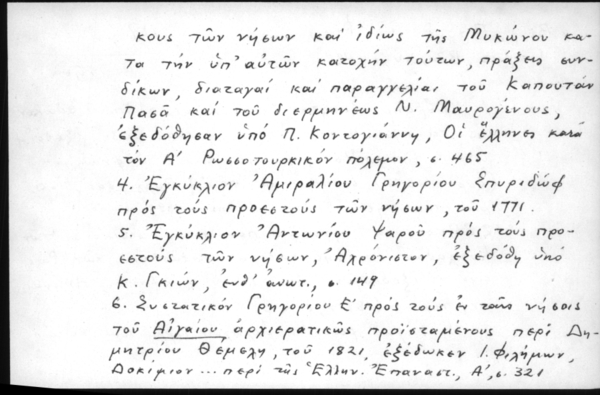 κους τῶν νήσων καί ἰδίως τῆς Μυκώνου κα-
τα τήν ὑπ' αὐτῶν κατοχήν τούτων, πράξεις συν-
δίκων, διαταγαί καί παραγγελίαι τοῦ Καπουτάν
Πασᾶ καί τοῦ διερμηνέως Ν. Μαυρογένους,
ἐξεδόθησαν ὑπό Π. Κοντογιάννη, Οἱ ἕλληνες κατά
τόν Α' Ρωσσοτουρκικόν πόλεμον, σ. 465
4. Ἐγκύκλιον Ἀμιραλίου Γρηγορίου Σπυριδώφ
πρός τούς προεστούς τῶν νήσων, τοῦ 1771.
5. Ἐγκύκλιον Ἀντωνίου Ψαροῦ πρός τούς προ-
εστούς τῶν νήσων, Ἀχρόνιστον, ἐξεδόθη ὑπό
Κ. Γκιών, ἐνθ' ἀνωτ., σ. 149
6. Συστατικόν Γρηγορίου Ε' πρός τούς ἐν ταῖς νήσοις
τοῦ Αἰγαίου ἀρχιερατικῶς προϊσταμένους περί Δη-
μητρίου Θέμελη, τοῦ 1821, ἐξέδωκεν Ι. Φιλήμων,
Δοκίμιον ... περί τῆς Ἑλλην. Ἐπαναστ., Α', σ. 321